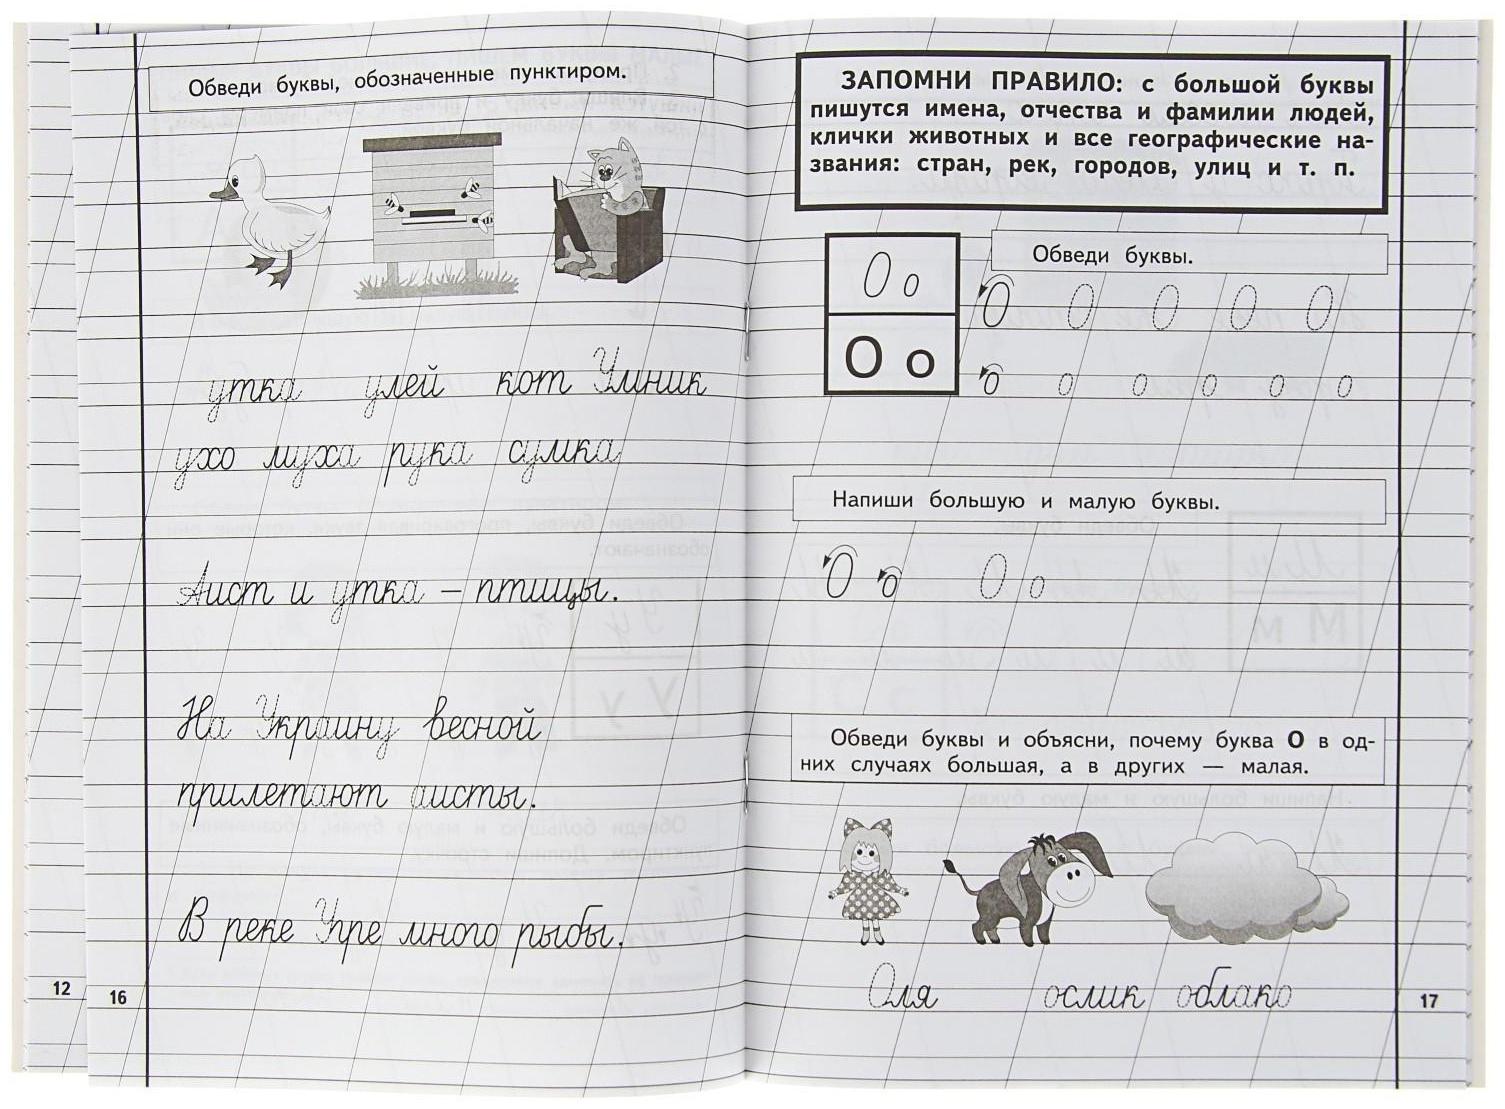 Обведи буквы, обозначенные пунктиром.
утка улей кот Умник
ухо муха рука сумка
Аист и утка – птицы.
На Украину весной
прилетают аисты.
В реке Упре много рыбы.
12
16
ЗАПОМНИ ПРАВИЛО: с большой буквы
пишутся имена, отчества и фамилии людей,
клички животных и все географические на-
звания: стран, рек, городов, улиц и т. п.
О о
О о
Обведи буквы.
О О О О О
о о о о о о
Напиши большую и малую буквы.
О о О о
Обведи буквы и объясни, почему буква О в од-
них случаях большая, а в других — малая.
Оля ослик облако
17